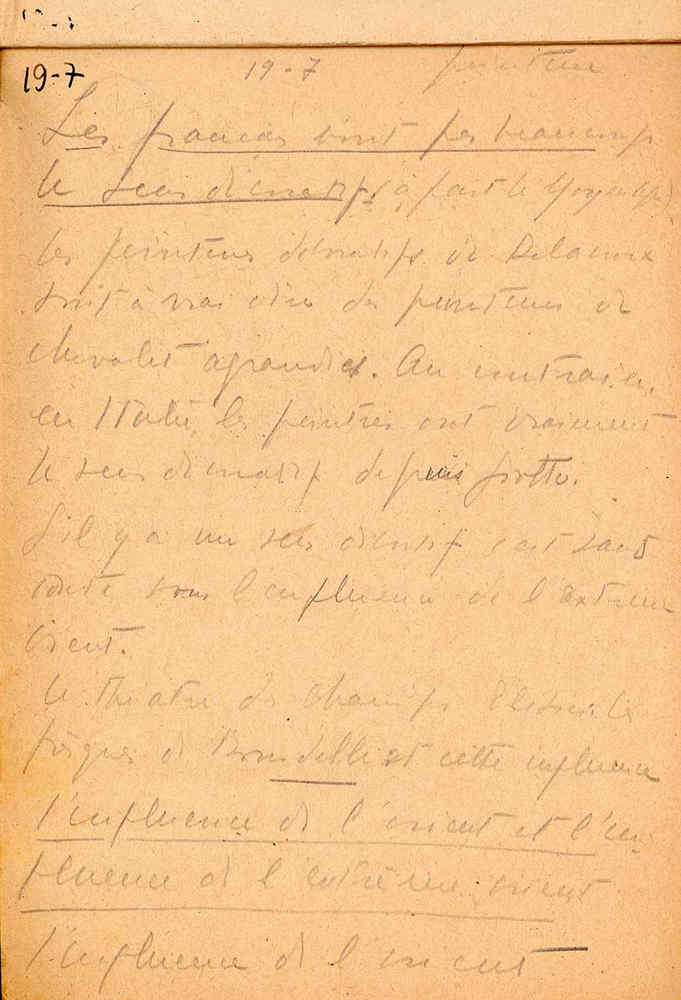 19-7
19-7 peinture
Les français n'ont pas beaucoup
le sens décoratif (à part le Moyen Age)
les peintures décoratives de Delacroix
sont à vrai dire des peintures de
chevalet agrandies. Au contraire,
en Italie, les peintres ont vraiment
le sens décoratif depuis Giotto.
S'il y a un sens décoratif c'est sans
doute sous l'influence de l'extreme
Orient.
le théatre des Champs Elysées les
fresques de Bourdelle et cette influence
l'influence de l'orient et l'in-
fluence de l'extrême orient
l'influence de l'orient